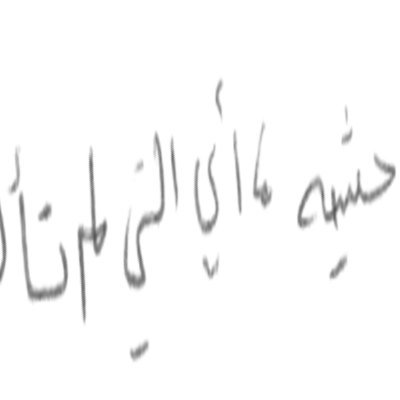 حثيه ما أي التي لم تأ